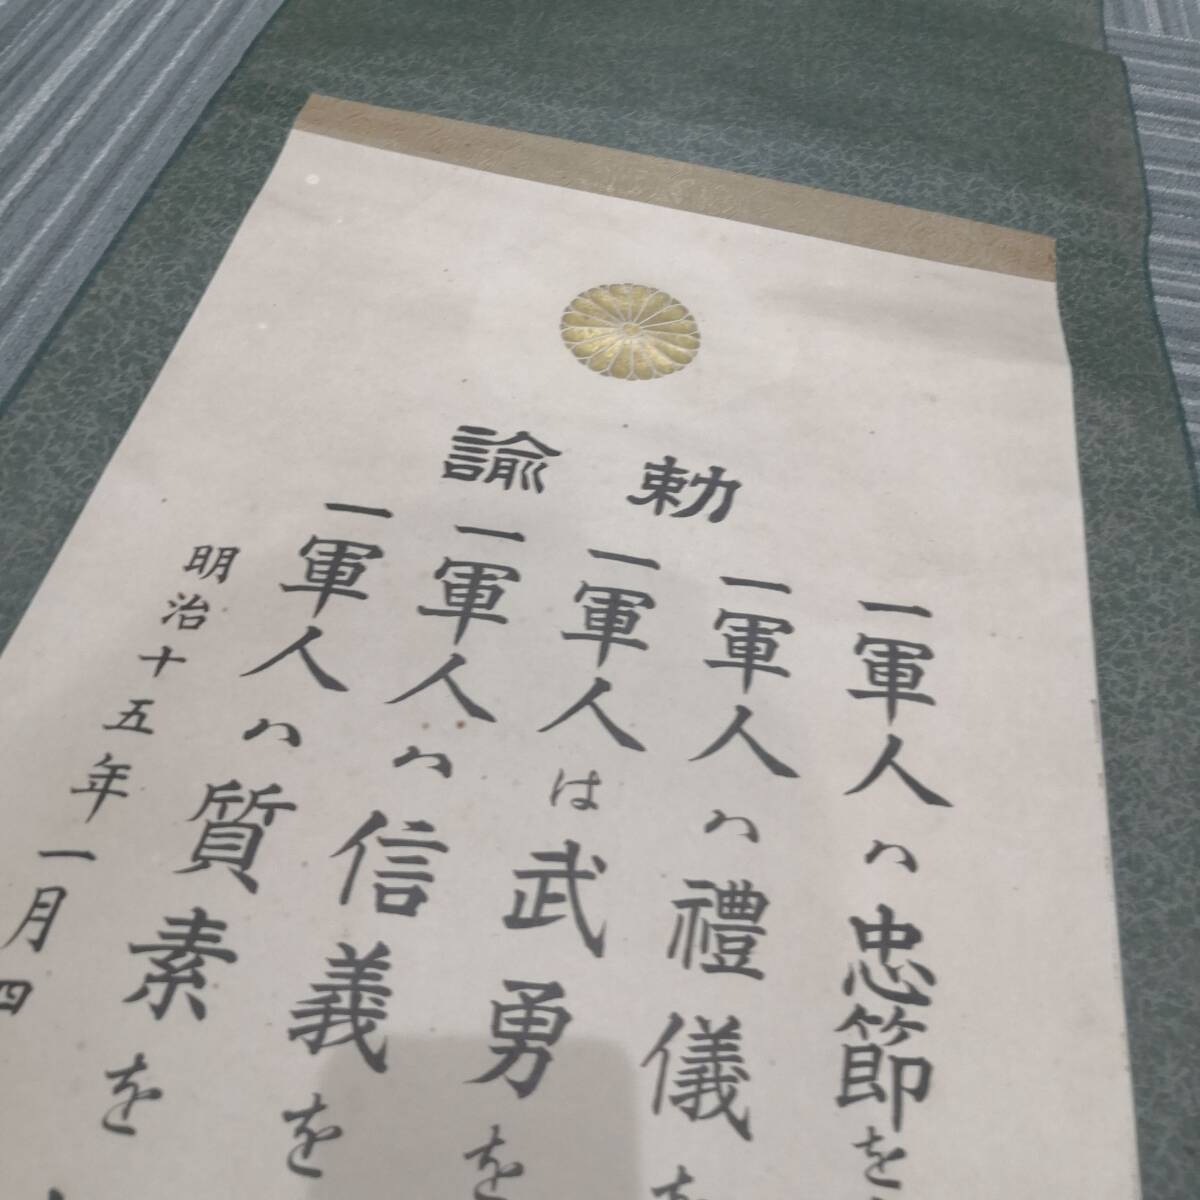 勅諭
一軍人ハ忠節を
一軍人ハ禮儀を
一軍人は武勇を
一軍人ハ信義を
一軍人ハ質素を
明治十五年一月四